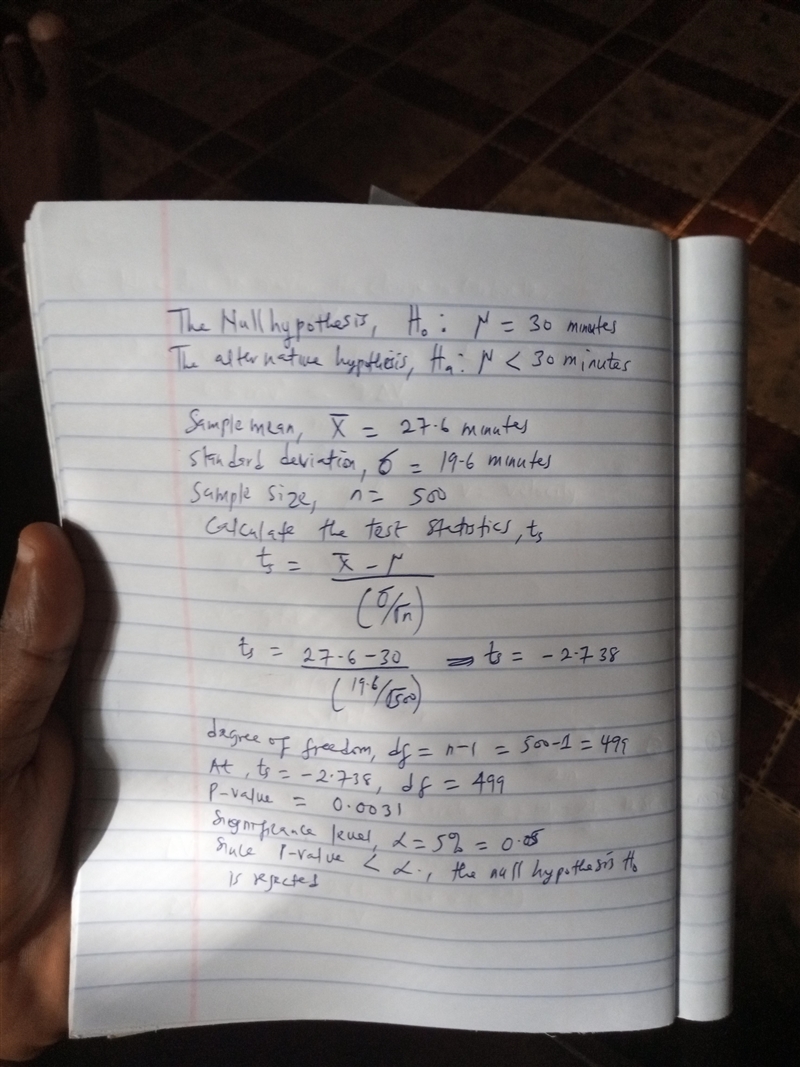 The Null hypothesis, H₀: μ = 30 minutes
The alternative hypothesis, Hₐ: μ < 30 minutes
Sample mean, x̄ = 27.6 minutes
Standard deviation, σ = 19.6 minutes
Sample size, n = 500
Calculate the test statistics, ts
ts = x̄ - μ / (σ/√n)
ts = 27.6 - 30 / (19.6/√500) ⇒ ts = -2.738
degree of freedom, df = n-1 = 500-1 = 499
At, ts = -2.738, df = 499
P-value = 0.0031
Significance level, α = 5% = 0.05
Since P-value < α., the null hypothesis H₀
is rejected